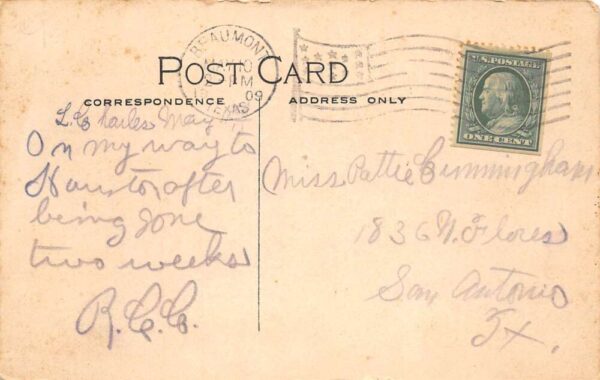 BEAUMONT
10
M
09
TEXAS
U.S. POSTAGE
ONE CENT
POST CARD
CORRESPONDENCE
ADDRESS ONLY
L. Charles May
On my way to
Houston after
being gone
two weeks
R.C.C.
Miss Pattie Cunningham
1836 N. Flores
San Antonio
Tx.